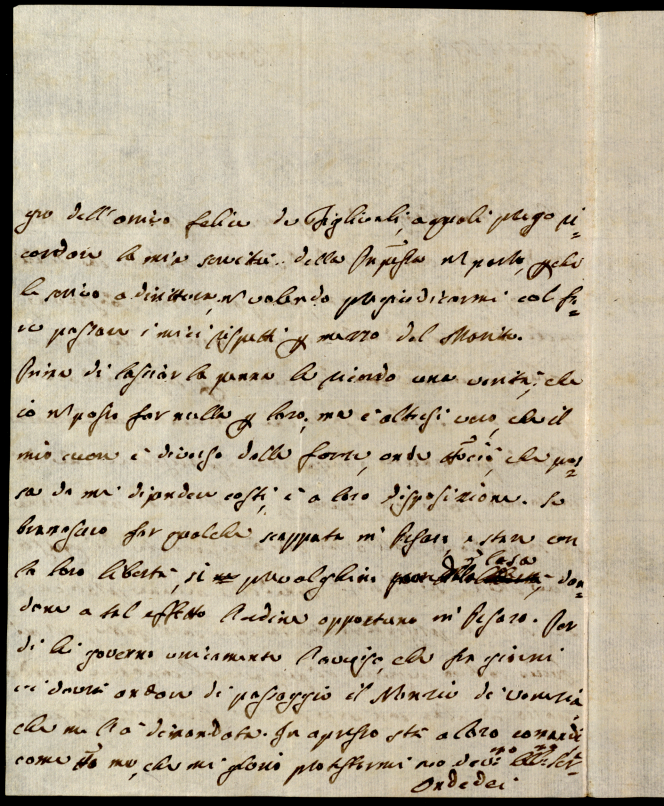 gio dell'amico Felice de Figliuoli, a quali prego ri=
cordare la mia servitù. della n̄ parlo, perche
le scrivo a dirittura, n̄ volendo pregiudicarmi col fa=
re passare i miei rispetti p mezzo del Marito.
Prima di lasciar la penna le ricordo una verità, che
io n̄ posso far nulla p loro, ma è altresì vero, che il
mio cuore è diverso dalle forze, onde ciò, che pos=
sa da me dipender costì, è a loro disposizione. Se
bramassero far qualche scappata in Pesaro, e stare con
la loro libertà, si prevalghino casa, dan=
done a tal effetto l'ordine opportuno in Pesaro. Per
di lei governo unicamente l'avviso, che fra giorni
ci dovrà andare di passaggio il Nunzio di Venezia,
che me l'à dimandata. In appresso stà a loro comandi
come me, che mi glorio protestarmi suo
Ondedei